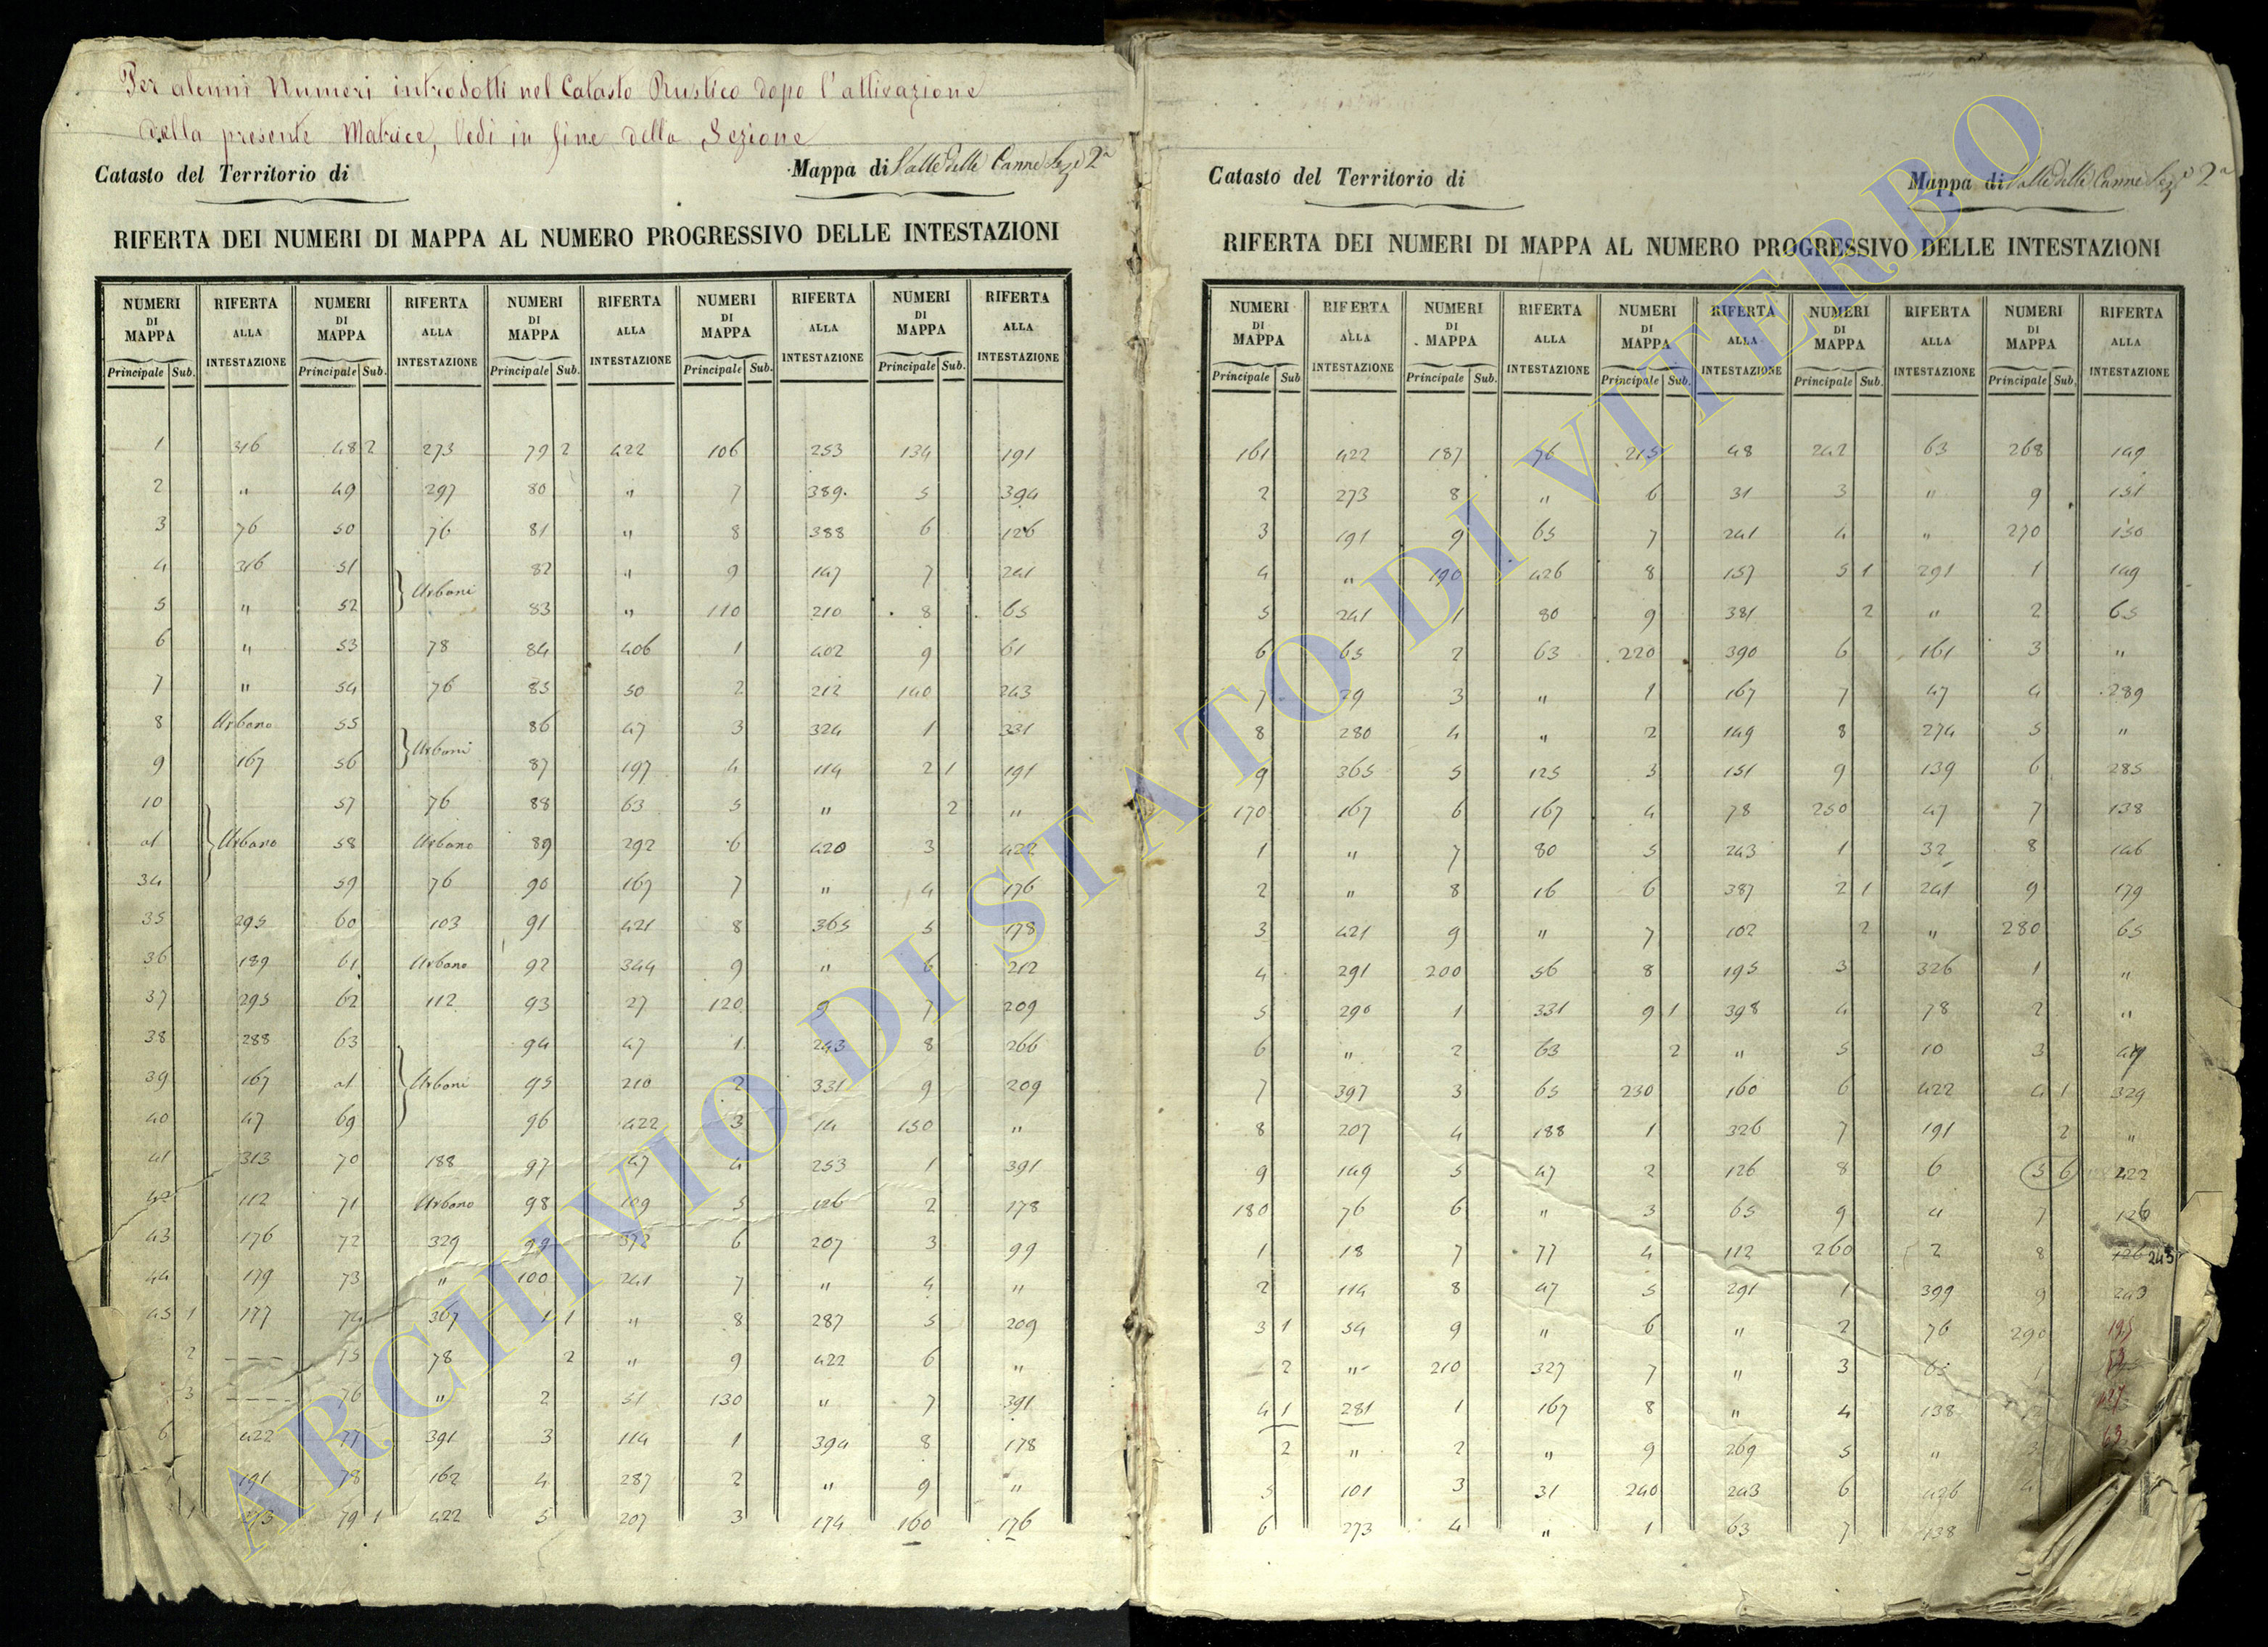 Per alcuni Numeri introdotti nel Catasto Rustico dopo l'attivazione
della presente Matrice, Vedi in fine della Sezione
Catasto del Territorio di Mappa di Valle delle Canne Sez.e 2a
RIFERTA DEI NUMERI DI MAPPA AL NUMERO PROGRESSIVO DELLE INTESTAZIONI
NUMERI RIFERTA NUMERI RIFERTA NUMERI RIFERTA NUMERI RIFERTA NUMERI RIFERTA
DI ALLA DI ALLA DI ALLA DI ALLA DI ALLA
MAPPA INTESTAZIONE MAPPA INTESTAZIONE MAPPA INTESTAZIONE MAPPA INTESTAZIONE MAPPA INTESTAZIONE
Principale Sub. Principale Sub. Principale Sub. Principale Sub. Principale Sub.
1 316 48 2 273 79 2 422 106 253 134 191
2 " 49 297 80 " 7 389 5 394
3 76 50 76 81 " 8 388 6 126
4 316 51 Urbani 82 " 9 147 7 241
5 " 52 83 " 110 210 8 65
6 " 53 78 84 406 1 402 9 61
7 " 54 76 85 50 2 212 140 243
8 Urbano 55 Urbani 86 47 3 324 1 331
9 167 56 87 197 4 114 2 1 191
10 57 76 88 63 5 " 2 "
al Urbano 58 Urbano 89 292 6 420 3 422
34 59 76 90 167 7 " 4 176
35 295 60 103 91 421 8 365 5 178
36 189 61 Urbano 92 344 9 " 6 212
37 295 62 112 93 27 120 9 7 209
38 288 63 94 47 1 243 8 266
39 167 al Urbani 95 210 2 331 9 209
40 47 69 96 422 3 14 150 "
41 313 70 188 97 47 4 253 1 391
42 112 71 Urbano 98 109 5 126 2 178
43 176 72 329 99 372 6 207 3 99
44 179 73 " 100 241 7 " 4 "
45 1 177 74 367 1 1 " 8 287 5 209
2 75 78 2 " 9 422 6 "
3 76 " 2 51 130 " 7 391
6 422 77 391 3 114 1 394 8 178
191 78 162 4 287 2 " 9 "
1 273 79 1 422 5 207 3 174 160 176
Catasto del Territorio di Mappa di Valle delle Canne Sez.e 2a
RIFERTA DEI NUMERI DI MAPPA AL NUMERO PROGRESSIVO DELLE INTESTAZIONI
NUMERI RIFERTA NUMERI RIFERTA NUMERI RIFERTA NUMERI RIFERTA NUMERI RIFERTA
DI ALLA DI ALLA DI ALLA DI ALLA DI ALLA
MAPPA INTESTAZIONE MAPPA INTESTAZIONE MAPPA INTESTAZIONE MAPPA INTESTAZIONE MAPPA INTESTAZIONE
Principale Sub Principale Sub. Principale Sub. Principale Sub. Principale Sub.
161 422 187 76 215 48 242 63 268 149
2 273 8 " 6 31 3 " 9 151
3 191 9 65 7 241 4 " 270 150
4 " 190 426 8 157 5 1 291 1 149
5 241 1 80 9 381 2 " 2 65
6 65 2 63 220 390 6 161 3 "
7 29 3 " 1 167 7 47 4 289
8 280 4 " 2 149 8 274 5 "
9 365 5 125 3 151 9 139 6 285
170 167 6 167 4 78 250 47 7 138
1 " 7 80 5 243 1 32 8 146
2 " 8 16 6 387 2 1 241 9 179
3 421 9 " 7 102 2 " 280 65
4 291 200 56 8 195 3 326 1 "
5 290 1 331 9 1 398 4 78 2 "
6 " 2 63 2 " 5 10 3
7 397 3 65 230 160 6 422 4 1 329
8 207 4 188 1 326 7 191 2 "
9 149 5 47 2 126 8 6 5 6 422
180 76 6 " 3 65 9 4 7 126
1 18 7 77 4 112 260 2 8 126 243
2 114 8 47 5 291 1 399 9 243
3 1 54 9 " 6 " 2 76 290 195
2 " 210 327 7 " 3 63 1
4 1 281 1 167 8 " 4 138
2 " 2 " 9 269 5 " 63
5 101 3 31 240 243 6 426
6 273 4 " 1 63 7 138
ARCHIVIO DI STATO DI VITERBO